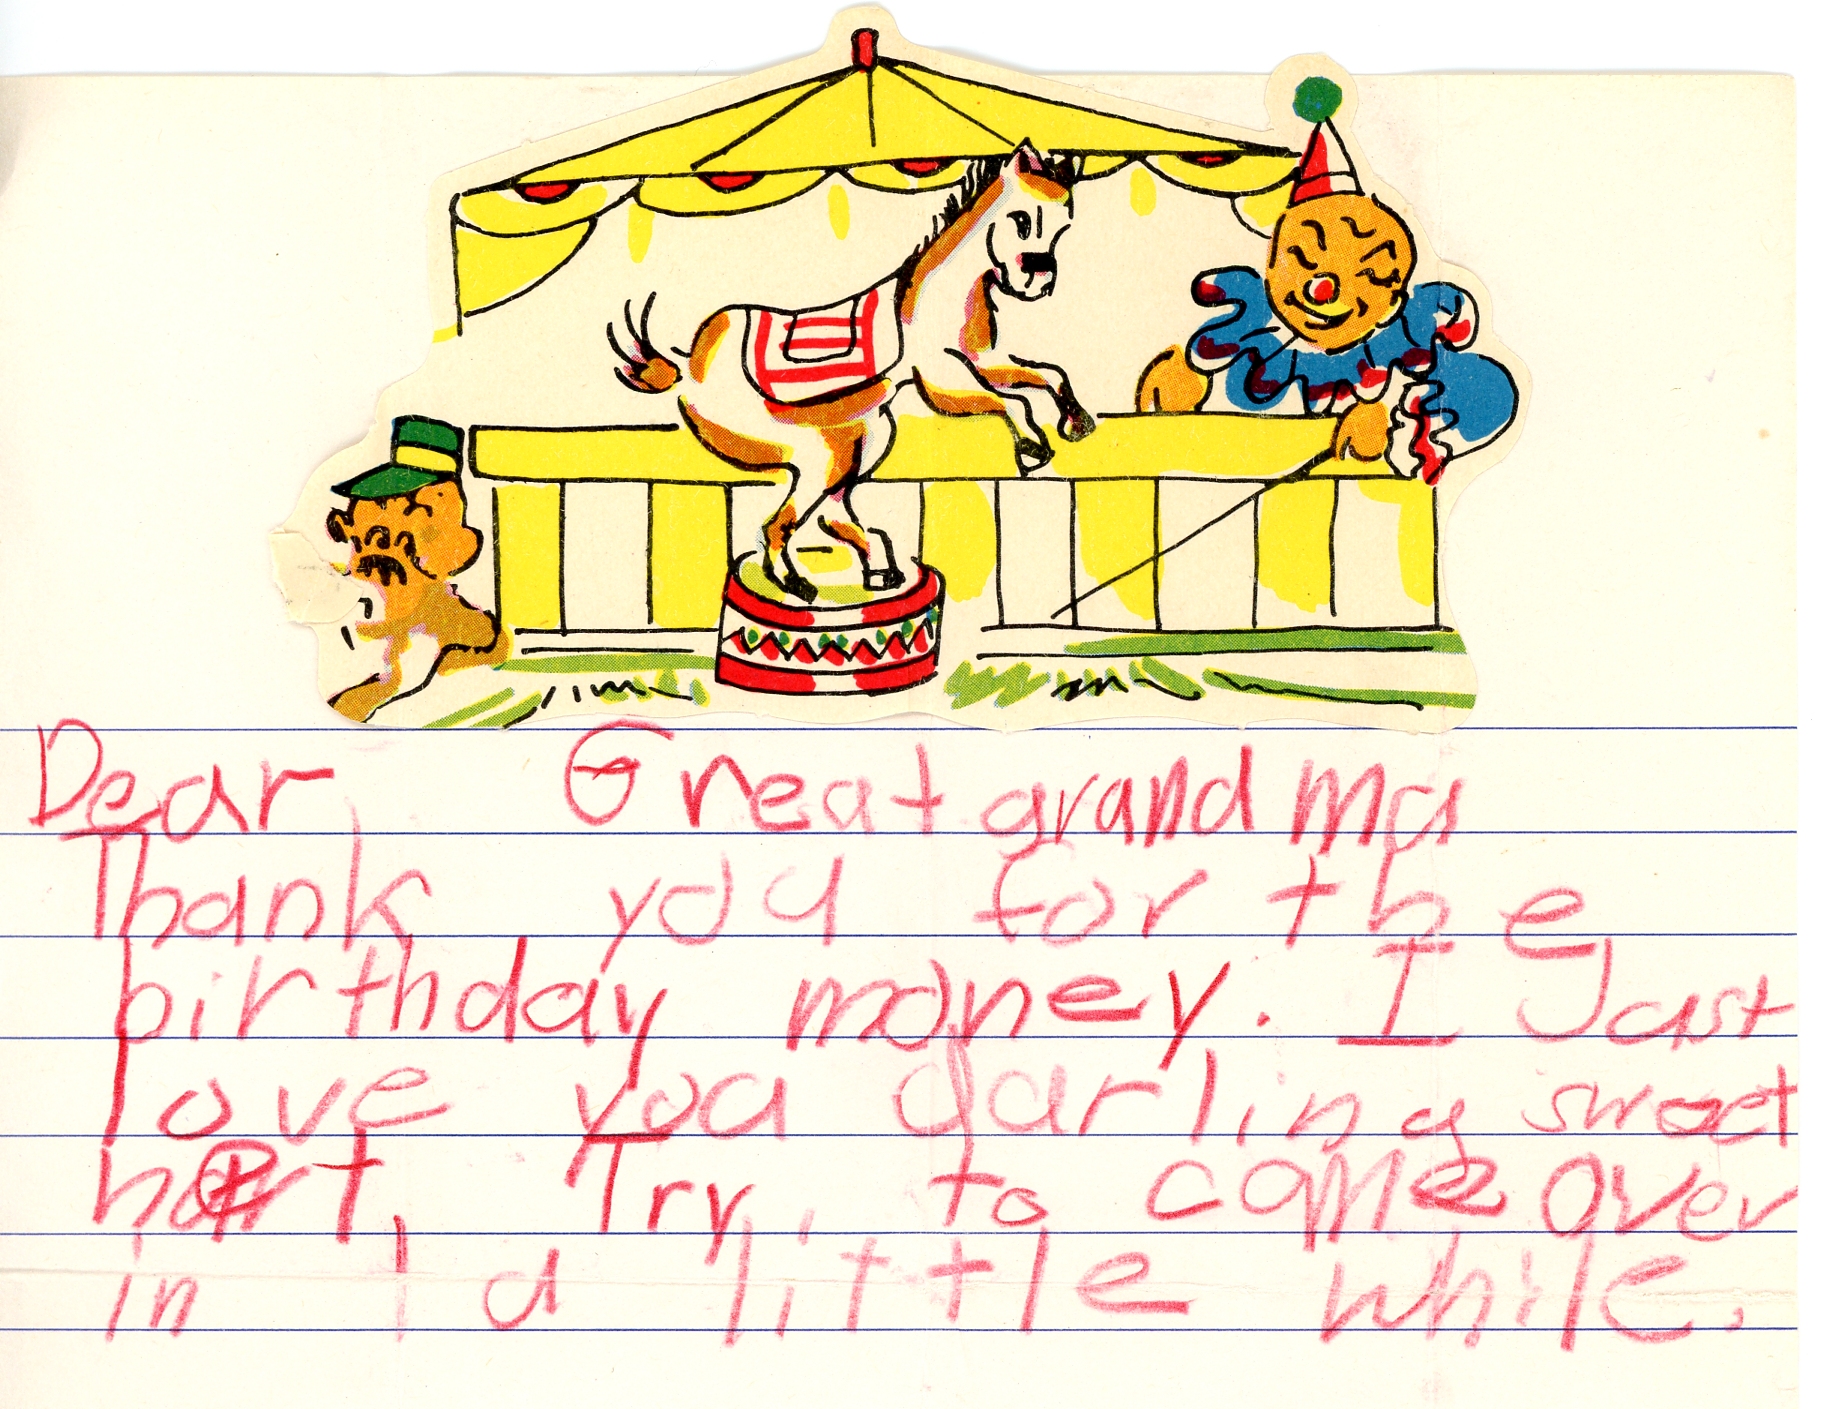 Dear Great grandma
Thank you for the
birthday money. I Just
love you darling sweet
hart. Try to come over
in a little while.